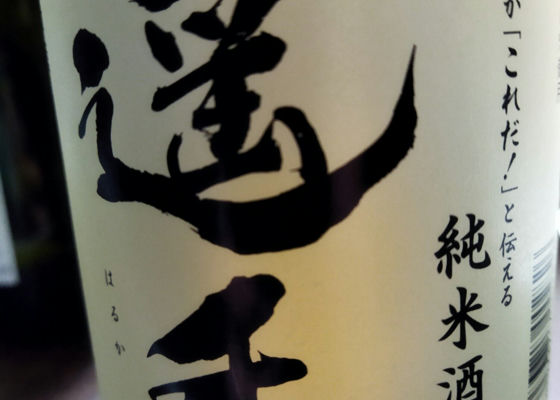 が「これだ!」と伝える
純米酒
遥
はるか